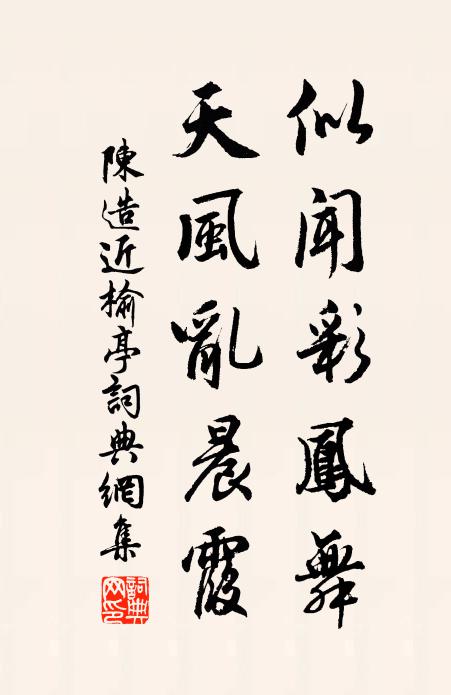 似聞彩鳳舞
天風亂晨霞
陳造近榆亭詞典網集
詞典网印